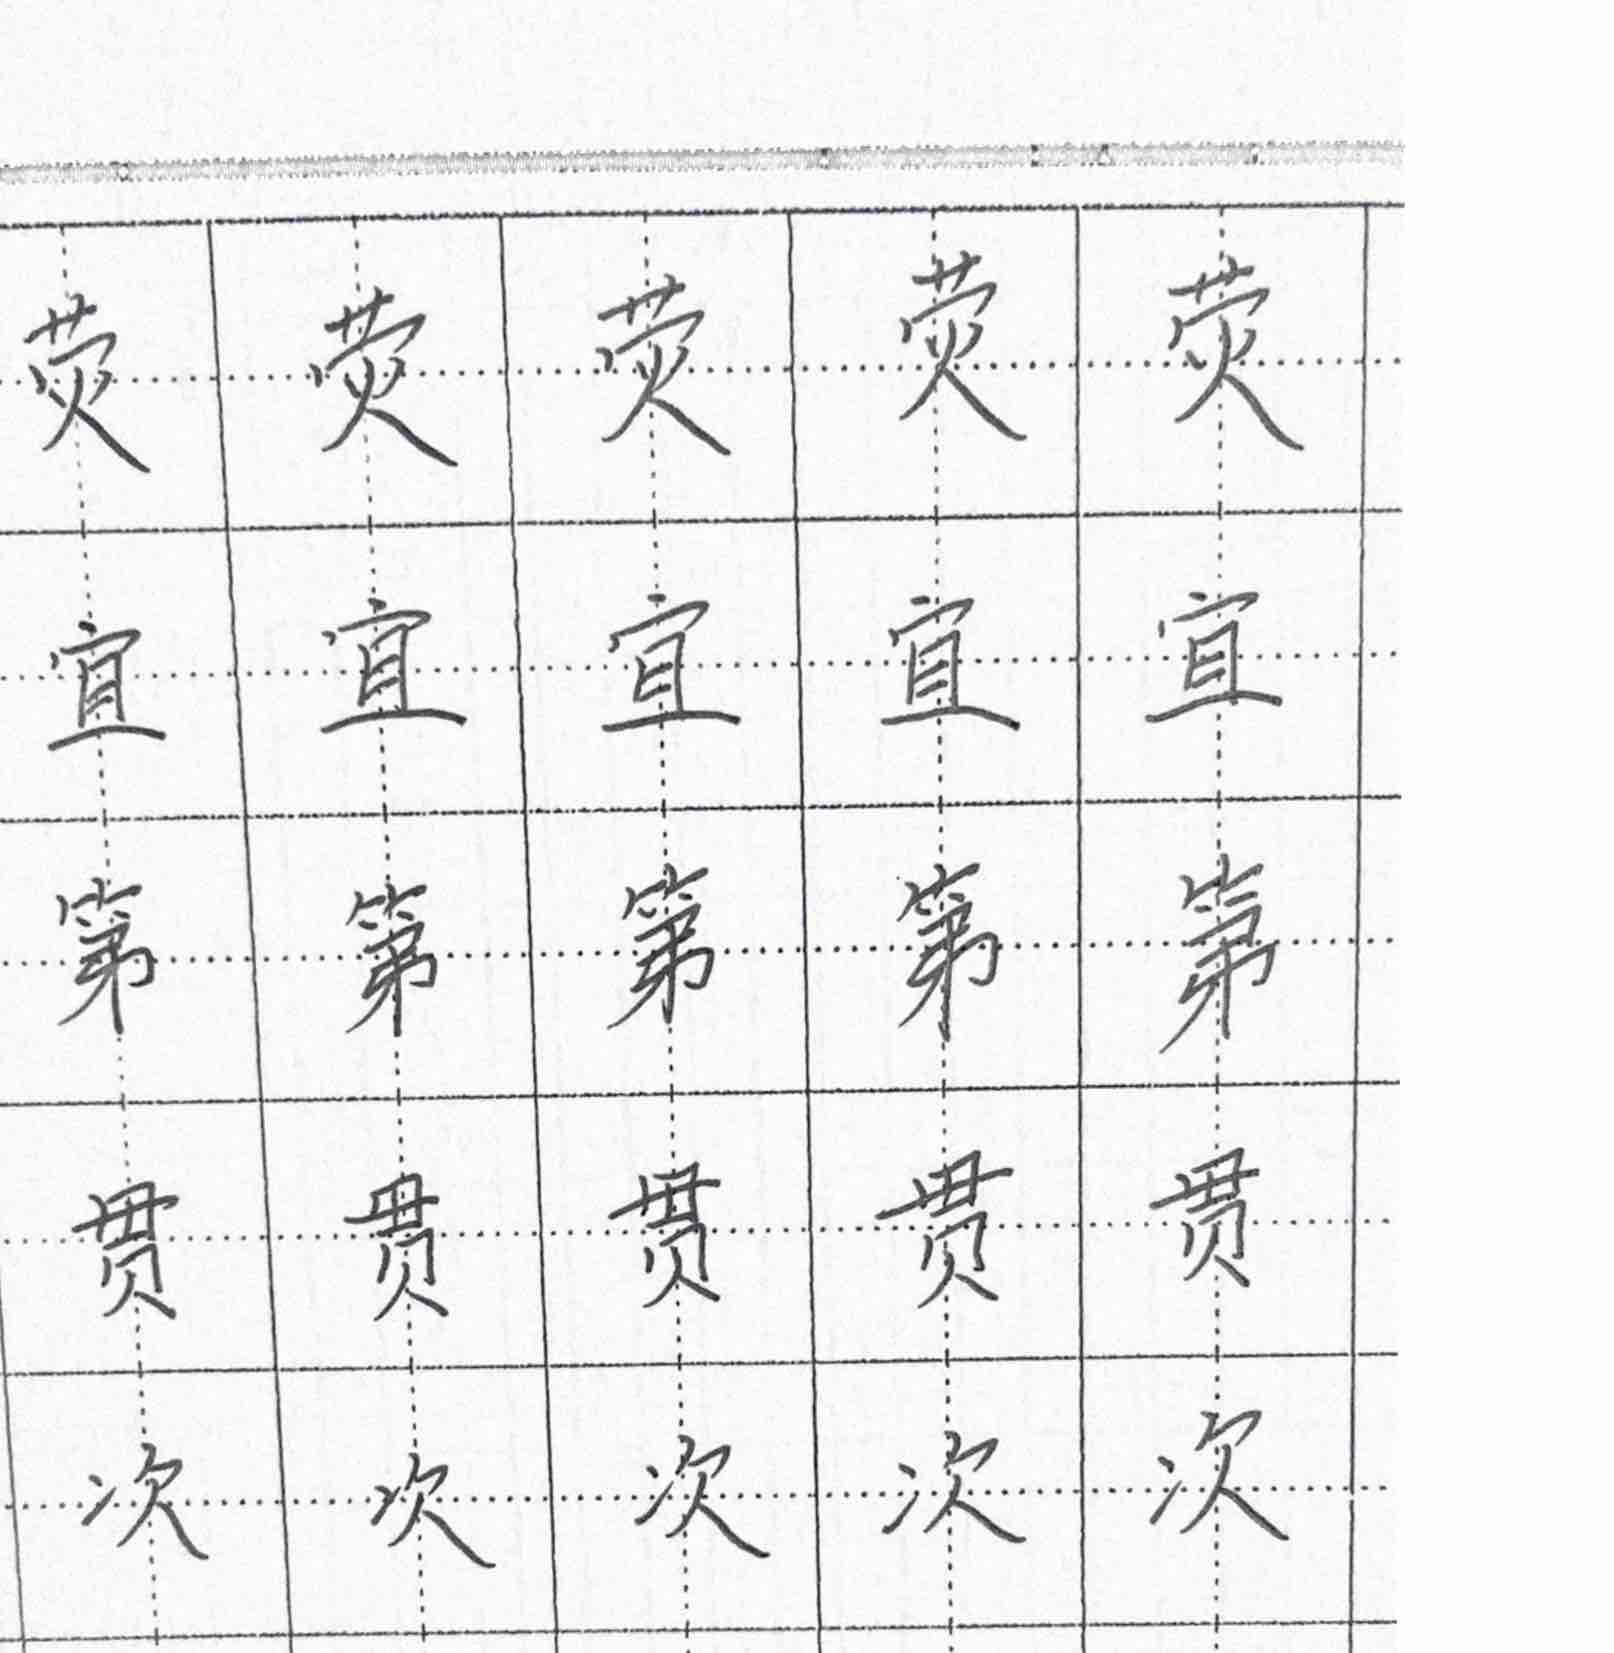 荧 荧 荧 荧 荧
宜 宜 宜 宜 宜
第 第 第 第 第
贯 贯 贯 贯 贯
次 次 次 次 次